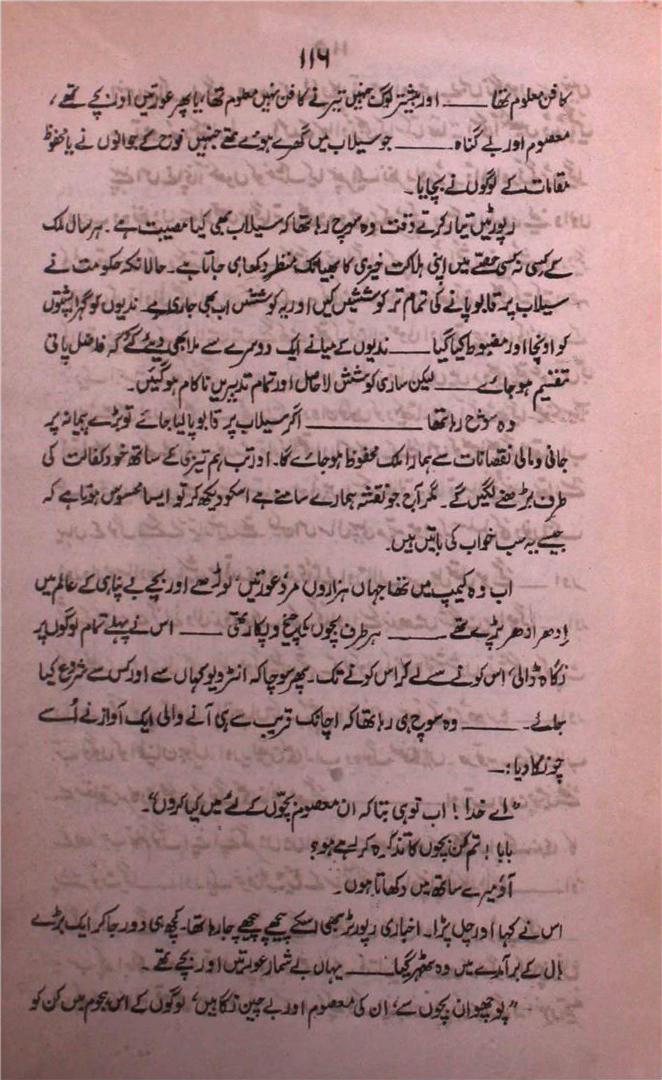 ۱۱۶
کا فن معلوم تھا ــــــ اور بیشتر لوگ جنہیں تیرنے کا فن نہیں معلوم تھا، یا پھر عورتیں اور بچے تھے،
معصوم اور بے گناہ ــــــ جو سیلاب میں گھرے ہوئے تھے جنہیں فوج کے جوانوں نے یا محفوظ
مقامات کے لوگوں نے بچایا۔
رپورٹیں تیار کرتے وقت وہ سوچ رہا تھا کہ سیلاب بھی کیا مصیبت ہے۔ ہر سال ملک
کے کسی نہ کسی حصے میں اپنی ہلاکت خیزی کا بھیانک منظر دکھا ہی جاتا ہے۔ حالانکہ حکومت نے
سیلاب پر قابو پانے کی تمام تر کوششیں کیں اور یہ کوششیں اب بھی جاری ہے۔ ندیوں کو گہرا پشتوں
کو اونچا اور مضبوط کیا گیا ــــــ ندیوں کے میانے ایک دوسرے سے ملا بھی دیئے گئے کہ فاضل پانی
تقسیم ہو جائے ــــــ لیکن ساری کوشش لا حاصل اور تمام تدبیریں ناکام ہو گئیں۔
وہ سوچ رہا تھا ــــــــــــ اگر سیلاب پر قابو پا لیا جائے تو بڑے پیمانہ پر
جانی و مالی نقصانات سے ہمارا ملک محفوظ ہو جائے گا۔ اور تب ہم تیزی کے ساتھ خود کفالت کی
طرف بڑھنے لگیں گے۔ مگر آج جو نقشہ ہمارے سامنے ہے اسکو دیکھ کر تو ایسا محسوس ہوتا ہے کہ
جیسے یہ سب خواب کی باتیں ہیں۔
اب وہ کیمپ میں تھا جہاں ہزاروں مرد، عورتیں، بوڑھے اور بچے بے پناہی کے عالم میں
اِدھر ادھر پڑے تھے ــــــ ہر طرف بچوں کی چیخ و پکار تھی ــــــ اس نے پہلے تمام لوگوں پر
نگاہ ڈالی، اس کونے سے لے کر اس کونے تک۔ پھر سوچا کہ انٹرویو کہاں سے اور کس سے شروع کیا
جائے۔ ــــــ وہ سوچ ہی رہا تھا کہ اچانک قریب سے ہی آنے والی ایک آواز نے اُسے
چونکا دیا:ــ
"اے خدا! اب تو ہی بتا کہ ان معصوم بچوں کے لئے میں کیا کروں"۔
بابا! تم کن بچوں کا تذکرہ کر رہے ہو؟
آؤ میرے ساتھ میں دکھاتا ہوں۔
اس نے کہا اور چل پڑا۔ اخباری رپورٹر بھی اسکے پیچھے پیچھے جا رہا تھا۔ کچھ ہی دور جا کر ایک بڑے
ہال کے برآمدے میں وہ ٹھہر گیا ــــــ یہاں بے شمار عورتیں اور بچے تھے۔
"پوچھو ان بچوں سے، ان کی معصوم اور بے چین نگاہیں، لوگوں کے اس ہجوم میں کن کو